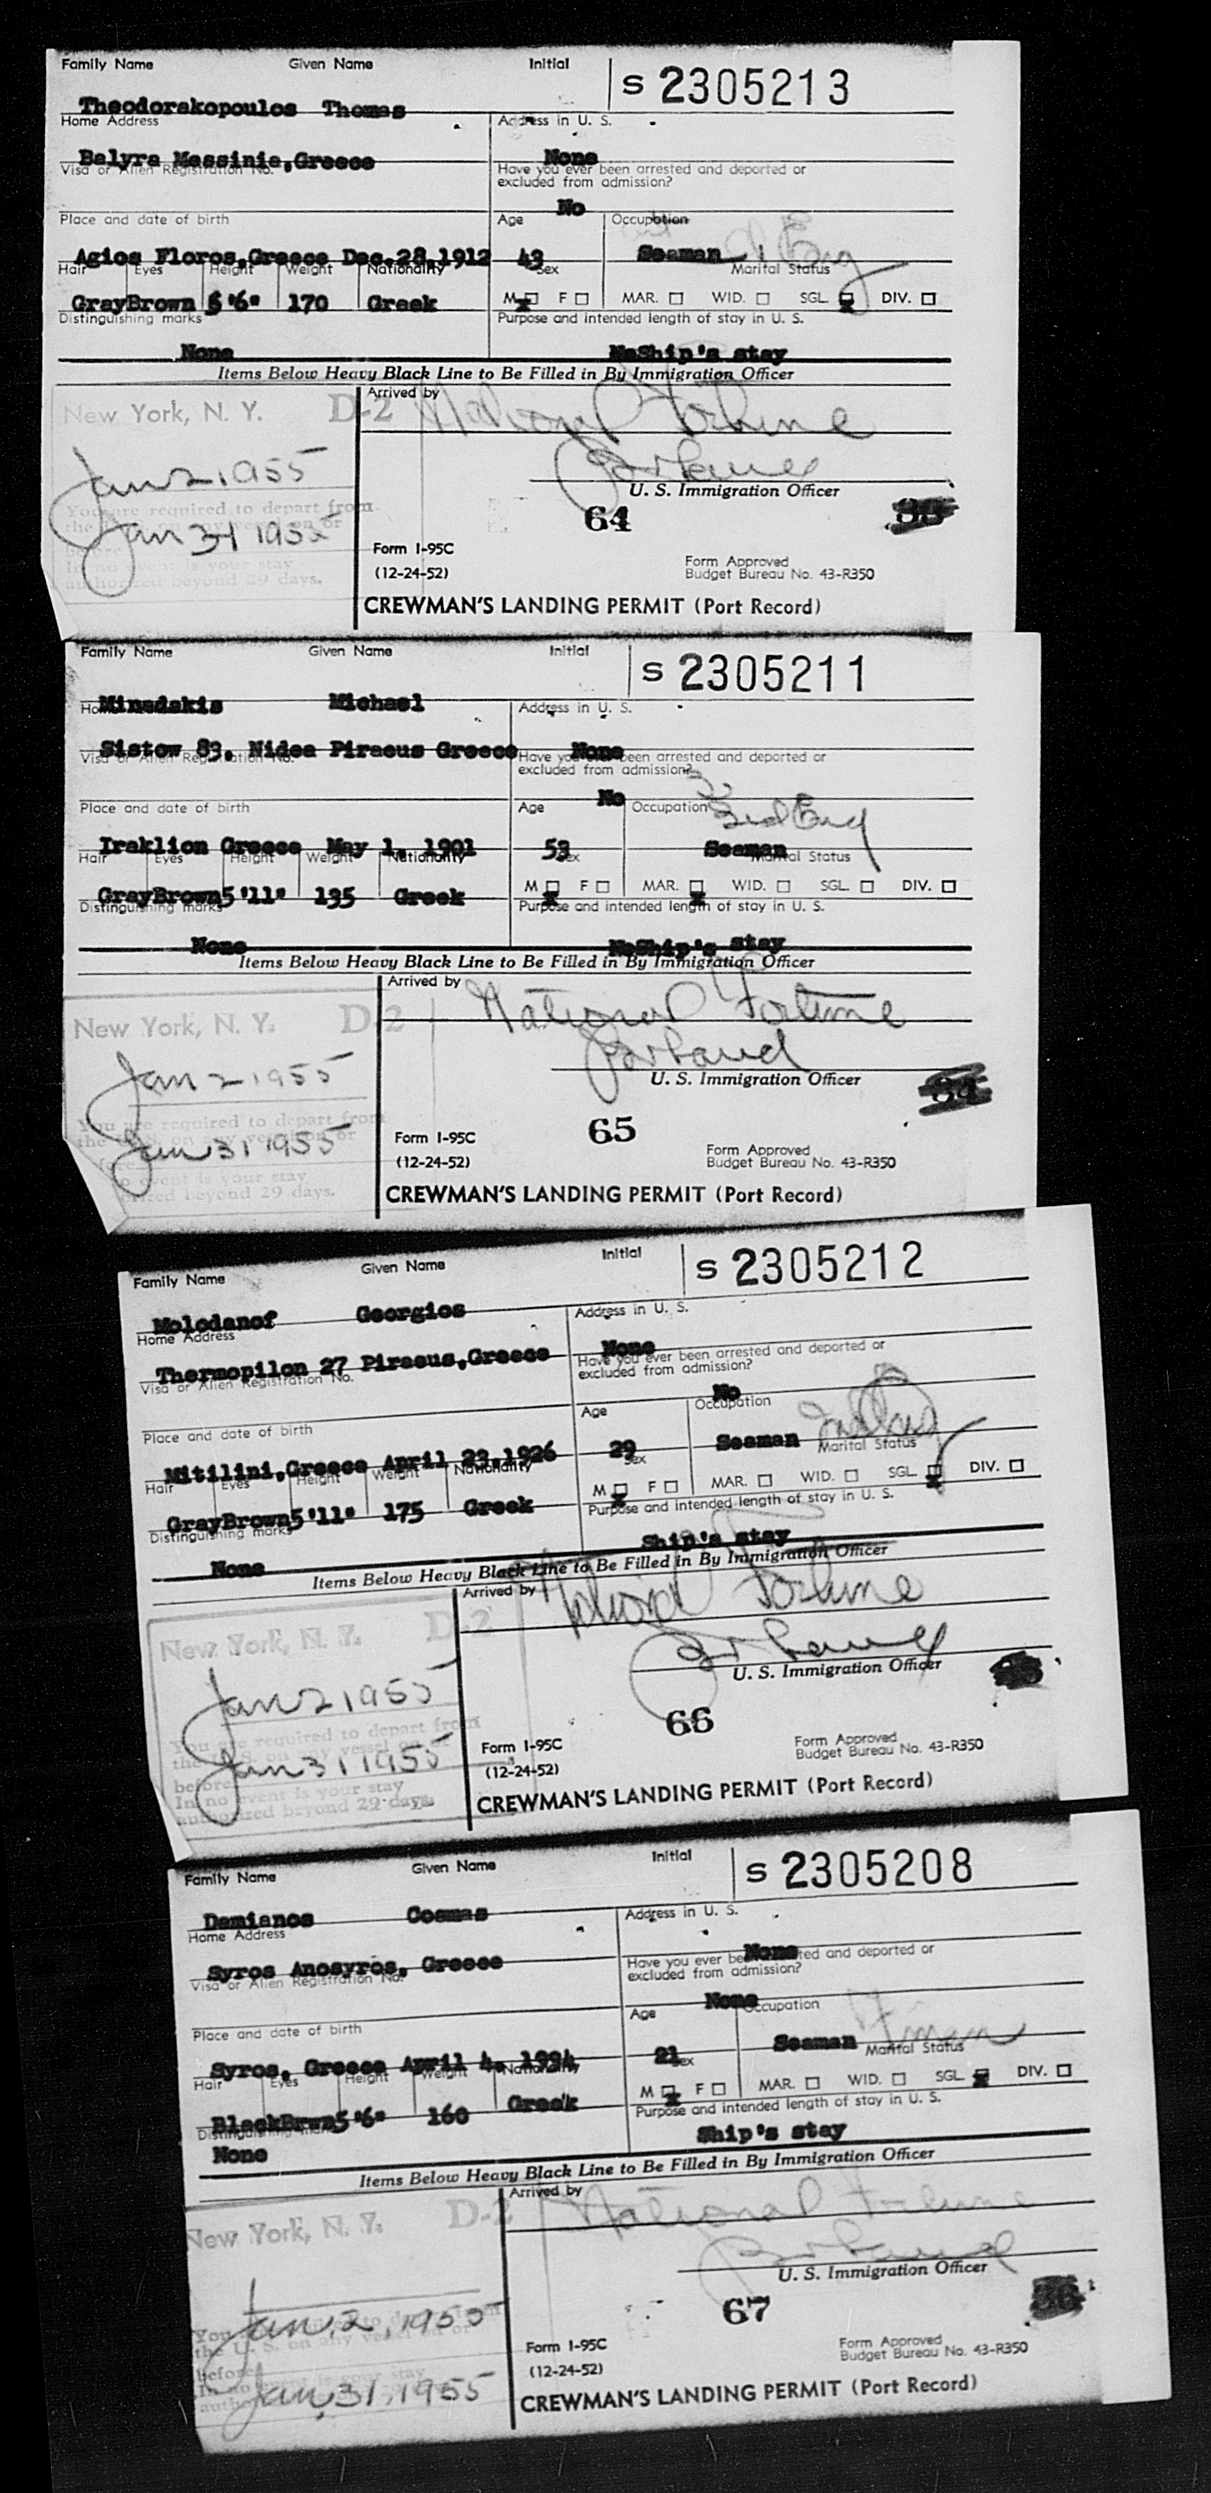 Family Name Given Name Initial S 2305213
Theodorakopoulos Thomas
Home Address Address in U. S.
Balyra Messinia,Greece None
Visa or Alien Registration No. Have you ever been arrested and deported or
excluded from admission?
No
Place and date of birth Age Occupation
Agios Floros,Greece Dec.28,1912 43 Seaman
Hair Eyes Height Weight Nationality Sex Marital Status
GrayBrown 5'6" 170 Greek M F MAR. WID. SGL. DIV.
Distinguishing marks Purpose and intended length of stay in U. S.
None Ship's stay
Items Below Heavy Black Line to Be Filled in By Immigration Officer
New York, N. Y. D-2 Arrived by National Fortune
Jan 2 1955
U. S. Immigration Officer
You are required to depart from
Jan 31 1955
64
In no event is your stay
authorized beyond 29 days.
Form I-95C
(12-24-52)
Form Approved
Budget Bureau No. 43-R350
CREWMAN'S LANDING PERMIT (Port Record)
Family Name Given Name Initial S 2305211
Minadakis Michael
Address in U. S.
Sistow 83, Nidea Piraeus Greece None
Visa or Alien Registration No. Have you ever been arrested and deported or
excluded from admission?
No
Place and date of birth Age Occupation
Iraklion Greece May 1, 1901 53 Seaman
Hair Eyes Height Weight Nationality Sex Marital Status
GrayBrown5'11" 195 Greek M F MAR. WID. SGL. DIV.
Distinguishing marks Purpose and intended length of stay in U. S.
None Ship's stay
Items Below Heavy Black Line to Be Filled in By Immigration Officer
New York, N. Y. D-2 Arrived by National Fortune
Jan 2 1955
U. S. Immigration Officer
You are required to depart from
Jan 31 1955
65
is your stay
beyond 29 days.
Form I-95C
(12-24-52)
Form Approved
Budget Bureau No. 43-R350
CREWMAN'S LANDING PERMIT (Port Record)
Family Name Given Name Initial S 2305212
Molodanof Georgios
Home Address Address in U. S.
Thermopilon 27 Piraeus,Greece None
Visa or Alien Registration No. Have you ever been arrested and deported or
excluded from admission?
No
Place and date of birth Age Occupation
Mitilini,Greece April 23,1926 29 Seaman
Hair Eyes Height Weight Nationality Sex Marital Status
GrayBrown5'11" 175 Greek M F MAR. WID. SGL. DIV.
Distinguishing marks Purpose and intended length of stay in U. S.
None Ship's stay
Items Below Heavy Black Line to Be Filled in By Immigration Officer
New York, N. Y. D-2 Arrived by National Fortune
Jan 2 1955
U. S. Immigration Officer
You are required to depart from
Jan 31 1955
66
before
In no event is your stay
authorized beyond 29 days.
Form I-95C
(12-24-52)
Form Approved
Budget Bureau No. 43-R350
CREWMAN'S LANDING PERMIT (Port Record)
Family Name Given Name Initial S 2305208
Damianos Cosmas
Home Address Address in U. S.
Syros Anosyros, Greece None
Visa or Alien Registration No. Have you ever been arrested and deported or
excluded from admission?
None
Place and date of birth Age Occupation
Syros, Greece April 4, 1934 21 Seaman
Hair Eyes Height Weight Nationality Sex Marital Status
BlackBrwn5'6" 160 Greek M F MAR. WID. SGL. DIV.
Distinguishing marks Purpose and intended length of stay in U. S.
None Ship's stay
Items Below Heavy Black Line to Be Filled in By Immigration Officer
New York, N. Y. D-2 Arrived by National Fortune
U. S. Immigration Officer
Jan. 2, 1955
67
Jan. 31, 1955
Form I-95C
(12-24-52)
Form Approved
Budget Bureau No. 43-R350
CREWMAN'S LANDING PERMIT (Port Record)